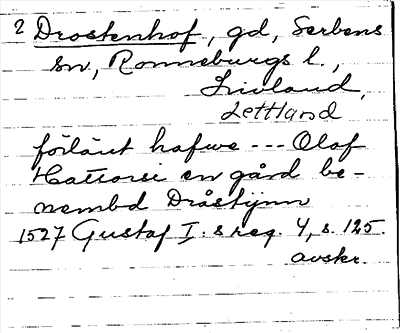 2 Drostenhof, gd, Serbens
sn, Ronneburgs l.,
Livland,
Lettland
förlänt hafwe --- Olof
Hattorsi en gård be-
nembd Dråstijnn
1527 Gustaf I. s reg. 4, s. 125.
avskr.